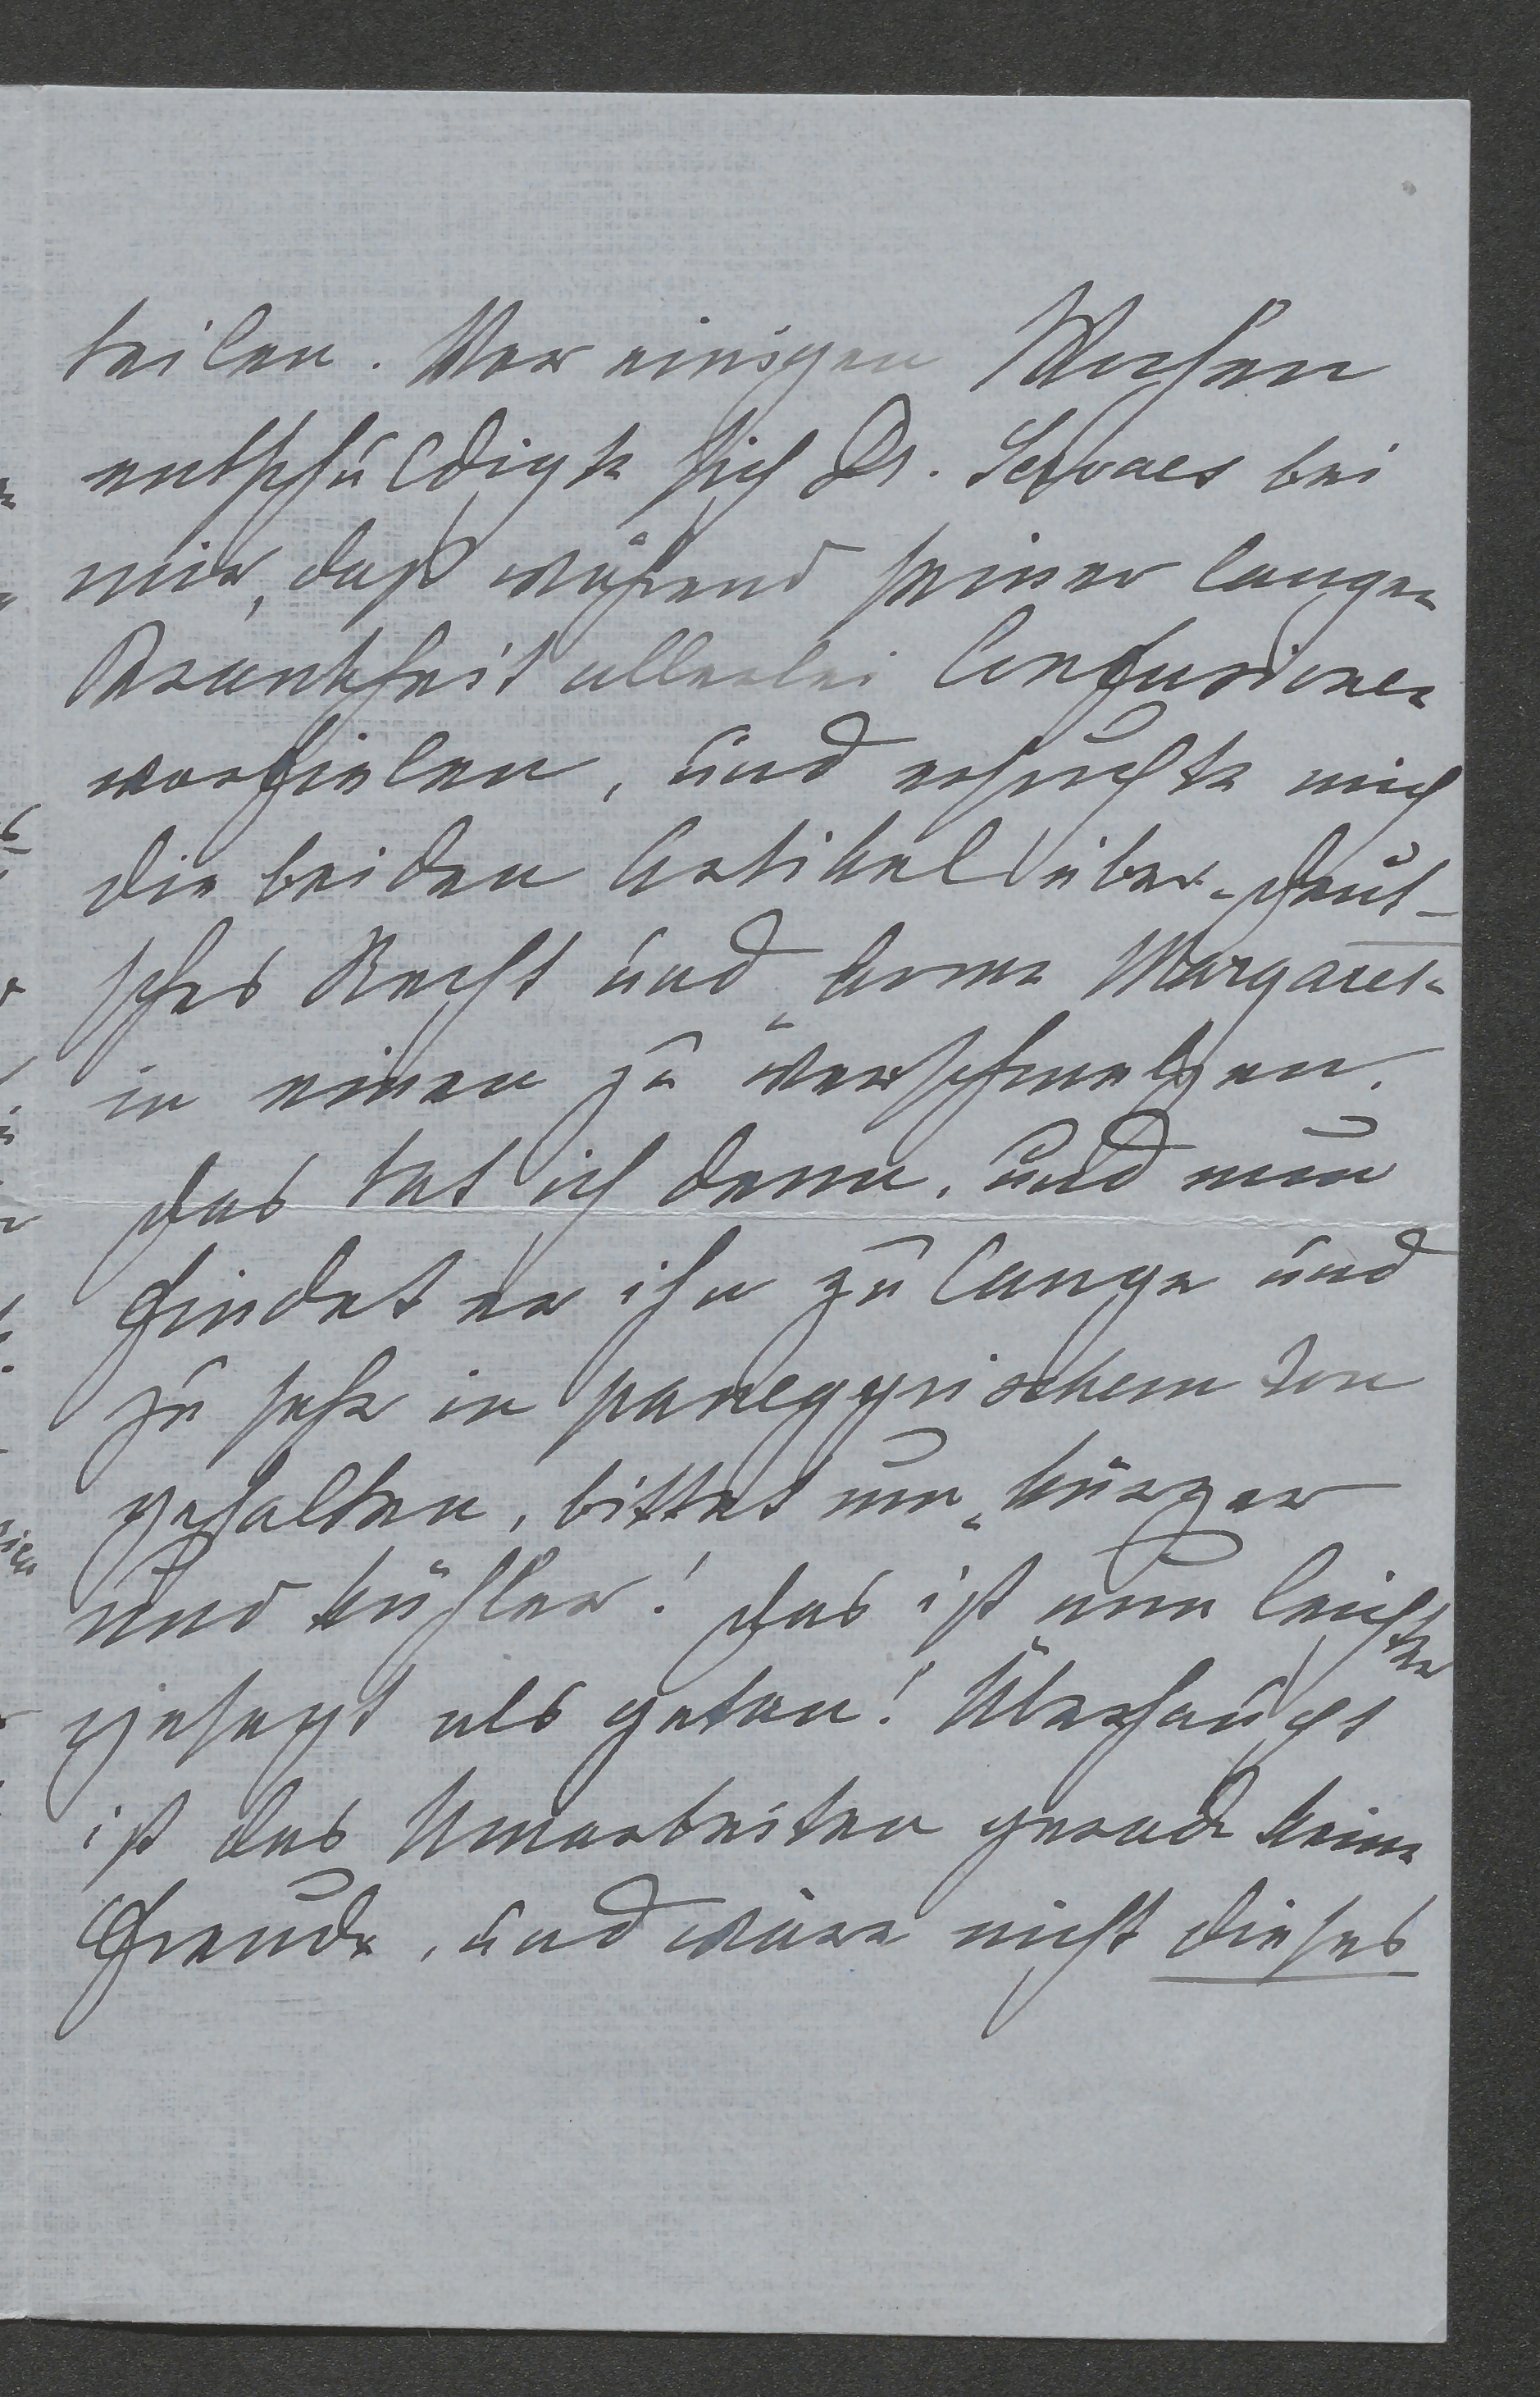 teilen. Vor einigen Wochen
entschuldigte sich Dr. Servaes bei
mir, daß während seiner langen
Krankheit allerlei Confusionen
vorfielen, und ersuchte mich
die beiden Artikel über „Deut-
sches Recht und „Arme Margaret“
in einen zu verschmelzen.
Das tat ich denn, und nun
findet er ihn zu lange und
zu sehr in panegyrischem Ton
gehalten, bittet um „kürzer
und kühler! Das ist nun leichter
gesagt als getan! Überhaupt
ist das Umarbeiten gerade keine
Freude, und wäre nicht dieses